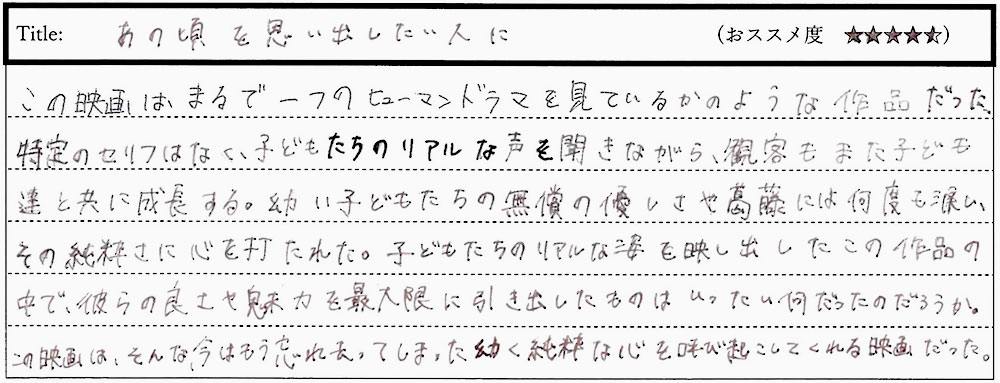 Title: あの頃を思い出したい人に (おススメ度 ★★★★⯪)
この映画は、まるで一つのヒューマンドラマを見ているかのような作品だった。
特定のセリフはなく、子どもたちのリアルな声を聞きながら、観客もまた子ども
達と共に成長する。幼い子どもたちの無償の優しさや葛藤には何度も涙し、
その純粋さに心を打たれた。子どもたちのリアルな姿を映し出したこの作品の
中で、彼らの良さや魅力を最大限に引き出したものはいったい何だったのだろうか。
この映画は、そんな今はもう忘れ去ってしまった幼く純粋な心を呼び起こしてくれる映画だった。